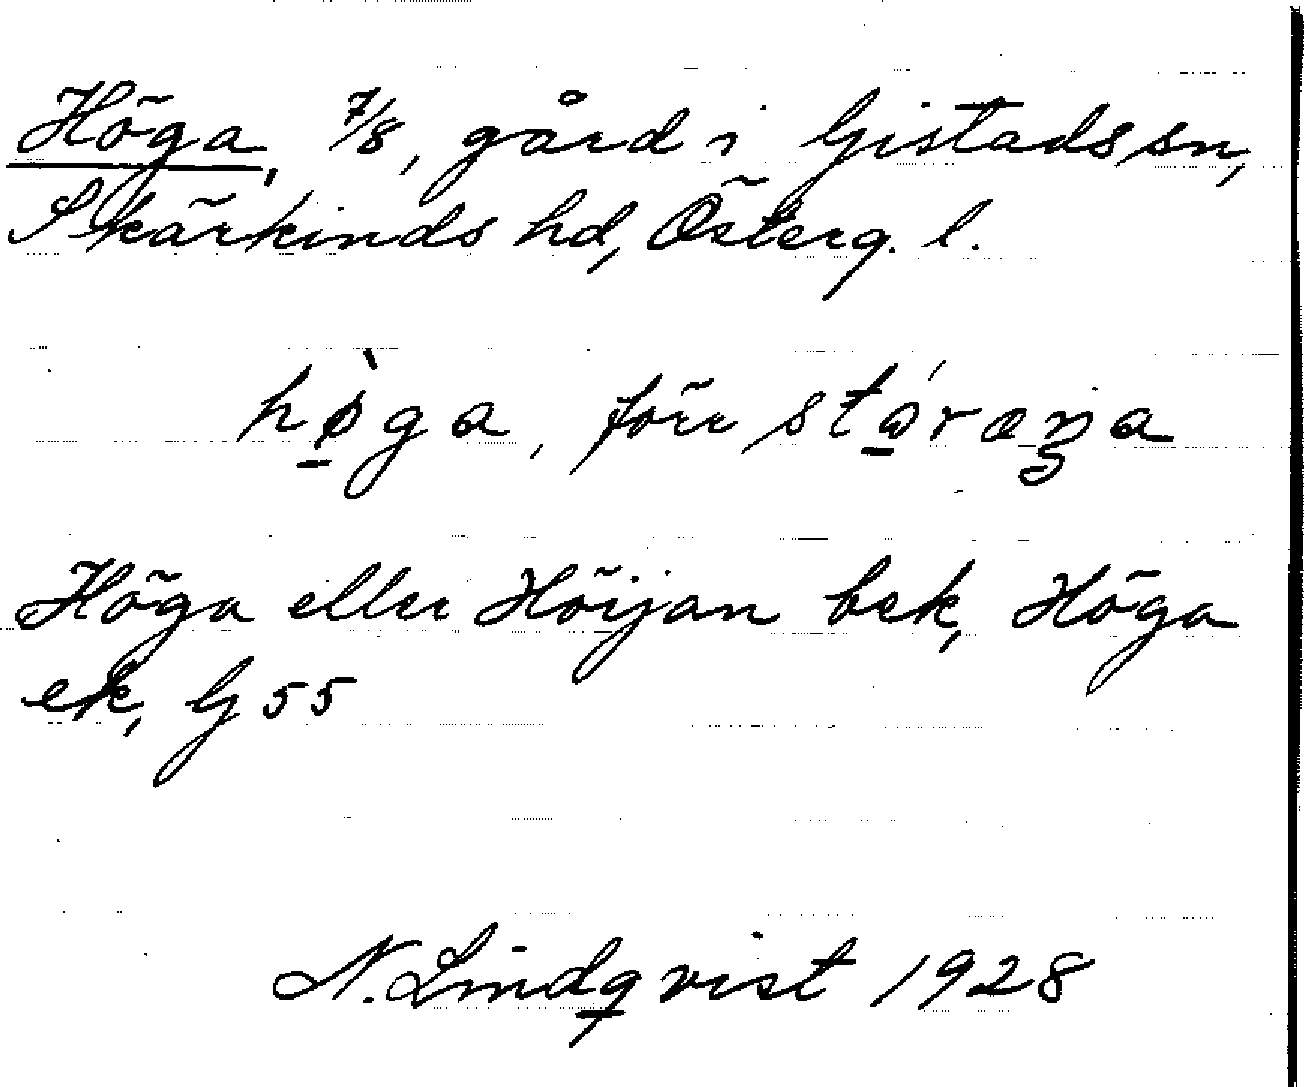 Höga, 7/8, gård i Gistads sn,
Skärkinds hd, Österg. l.
hø̠̀ga, förr
Höga eller Höijan bek, Höga
ek, G 55
N. Lindqvist 1928